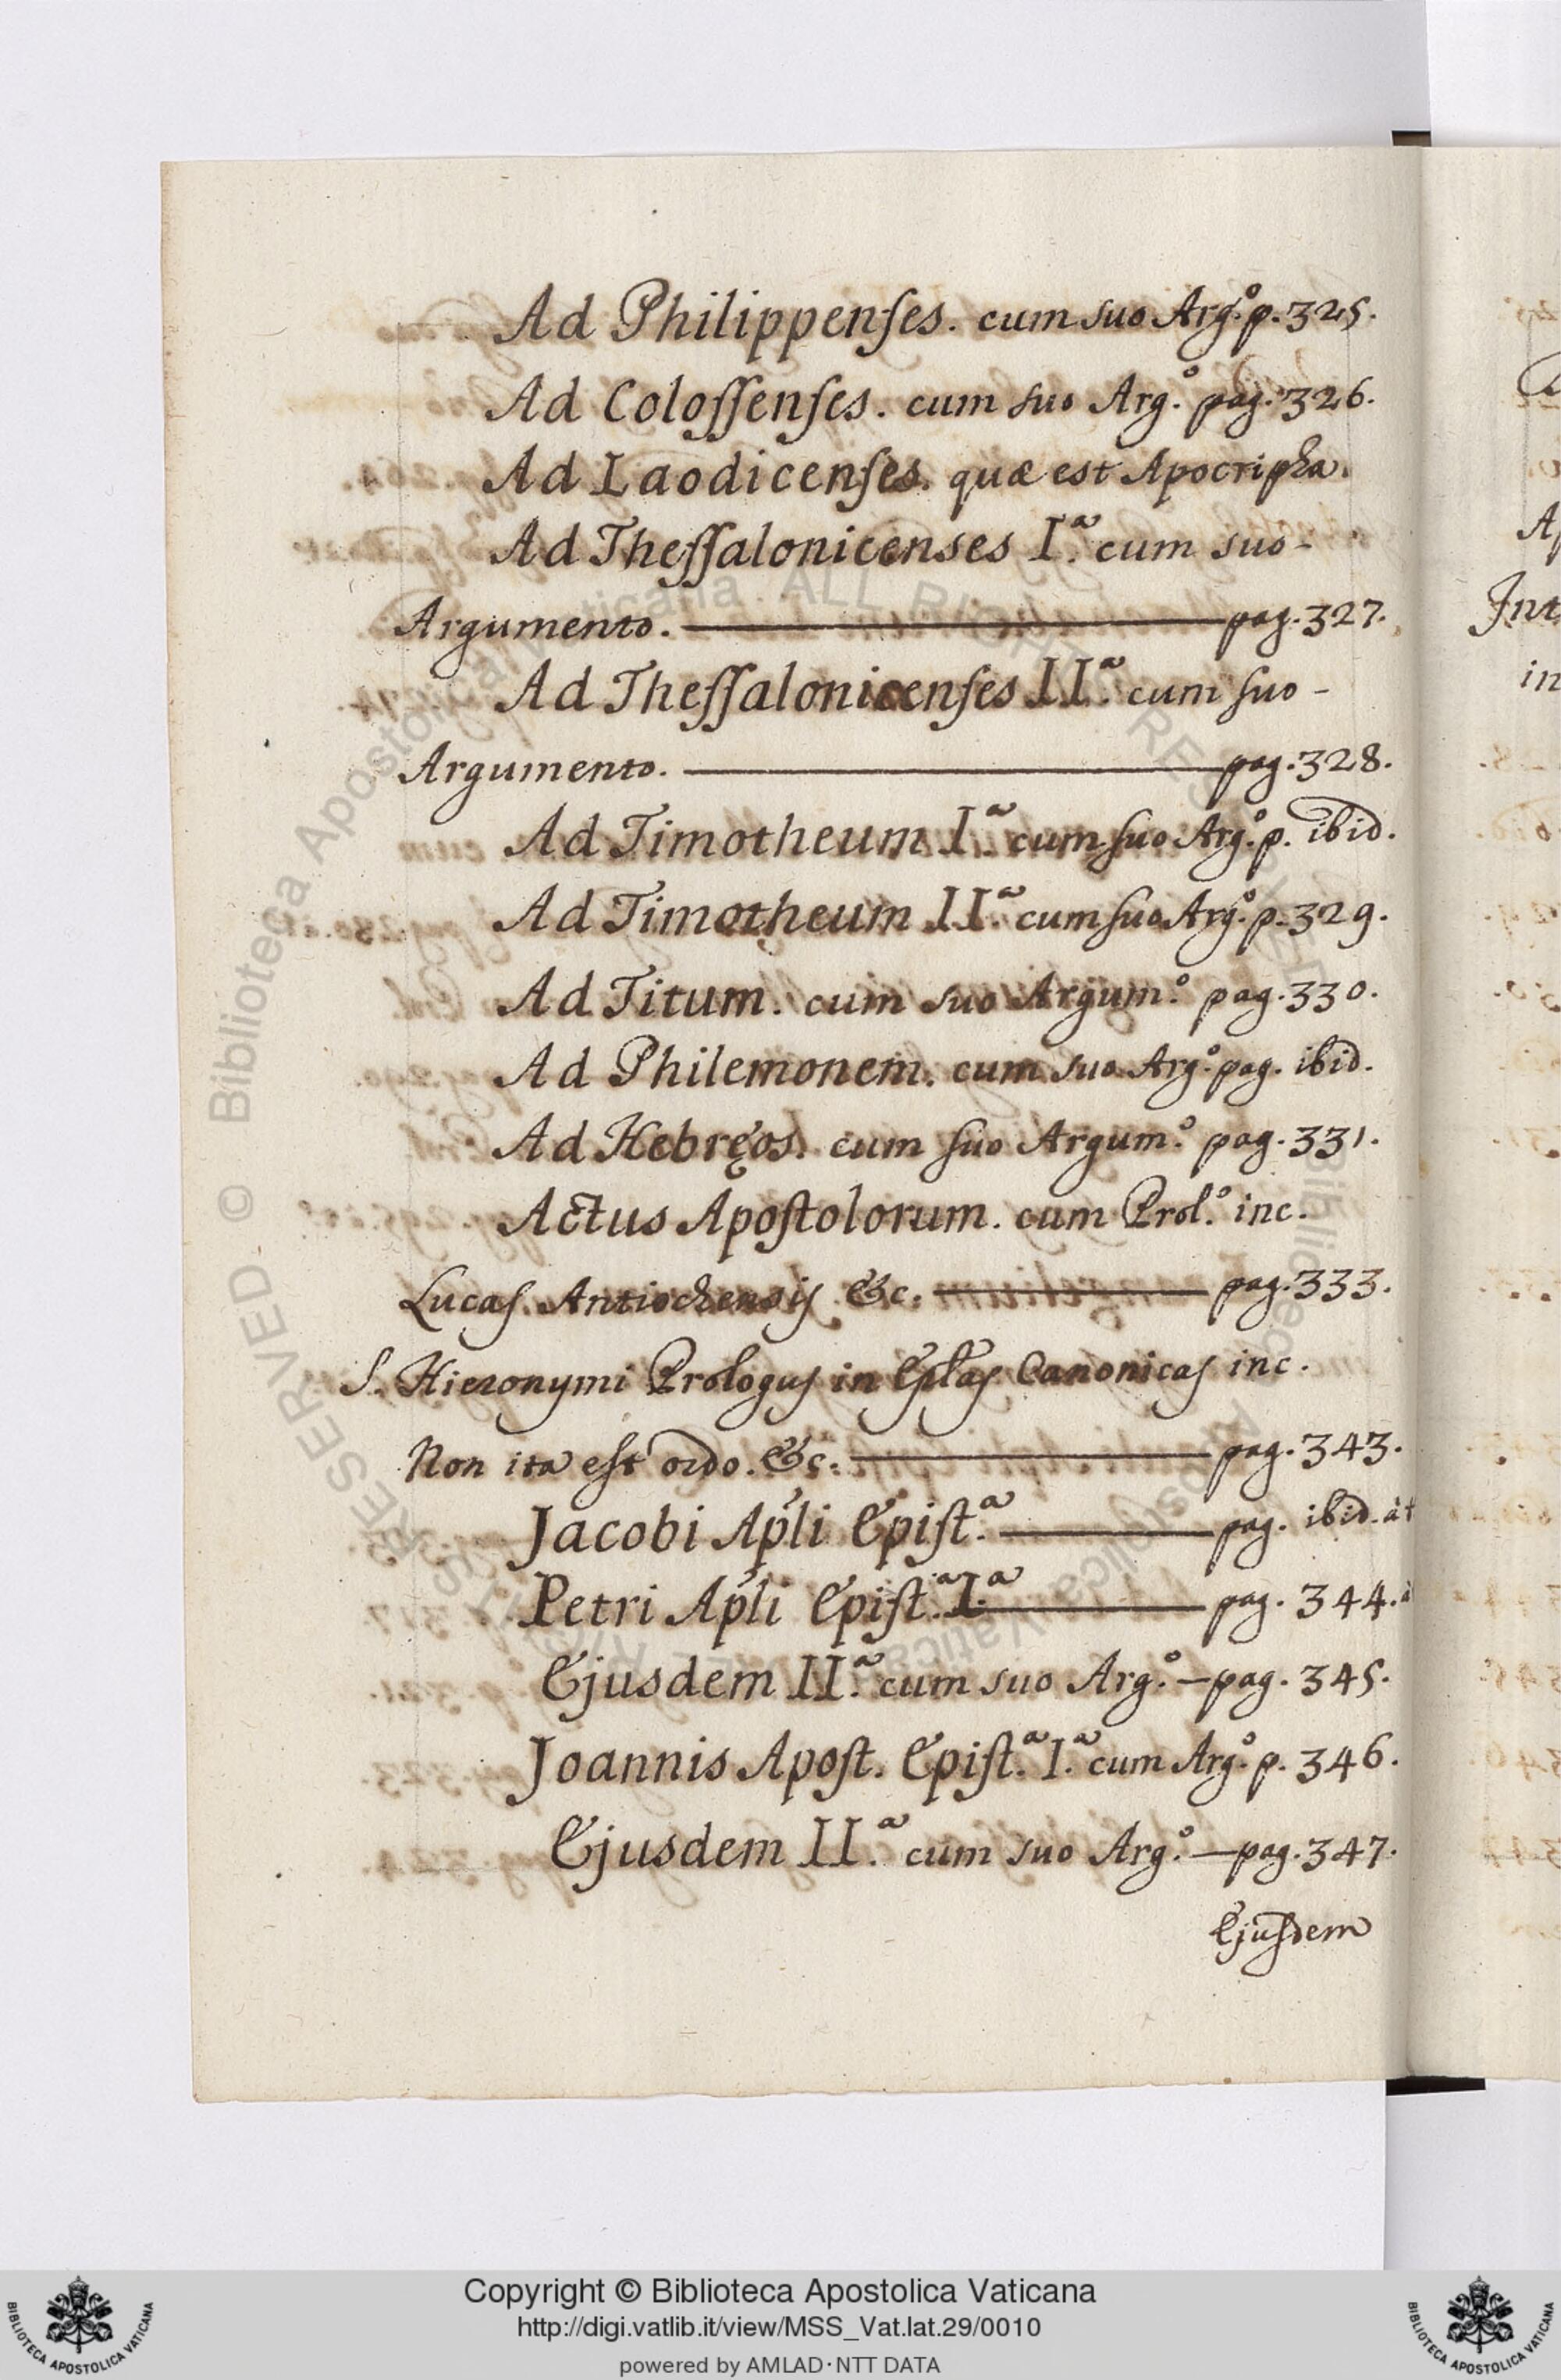 Ad Philippenses. cum suo Arg.º p. 325.
Ad Colossenses. cum suo Arg.º pag. 326.
Ad Laodicenses. quæ est Apocripha.
Ad Thessalonicenses I.ª cum suo -
Argumento. — pag. 327.
Ad Thessalonicenses II.ª cum suo -
Argumento. — pag. 328.
Ad Timotheum I.ª cum suo Arg.º p. ibid.
Ad Timotheum II.ª cum suo Arg.º p. 329.
Ad Titum. cum suo Argum.º pag. 330.
Ad Philemonem. cum suo Arg.º pag. ibid.
Ad Hebręos. cum suo Argum.º pag. 331.
Actus Apostolorum. cum Prol.º inc.
Lucas Antiochensis &c. — pag. 333.
S. Hieronymi Prologus in Eplas Canonicas inc.
Non ita est ordo. &c. — pag. 343.
Jacobi Apli Epist.ª — pag. ibid. àt
Petri Apli Epist.ª I.ª — pag. 344.
Ejusdem II.ª cum suo Arg.º — pag. 345.
Joannis Apost. Epist.ª I.ª cum Arg.º p. 346.
Ejusdem II.ª cum suo Arg.º — pag. 347.
Ejusdem
Copyright © Biblioteca Apostolica Vaticana
http://digi.vatlib.it/view/MSS_Vat.lat.29/0010
powered by AMLAD·NTT DATA
BIBLIOTECA APOSTOLICA VATICANA
BIBLIOTECA APOSTOLICA VATICANA